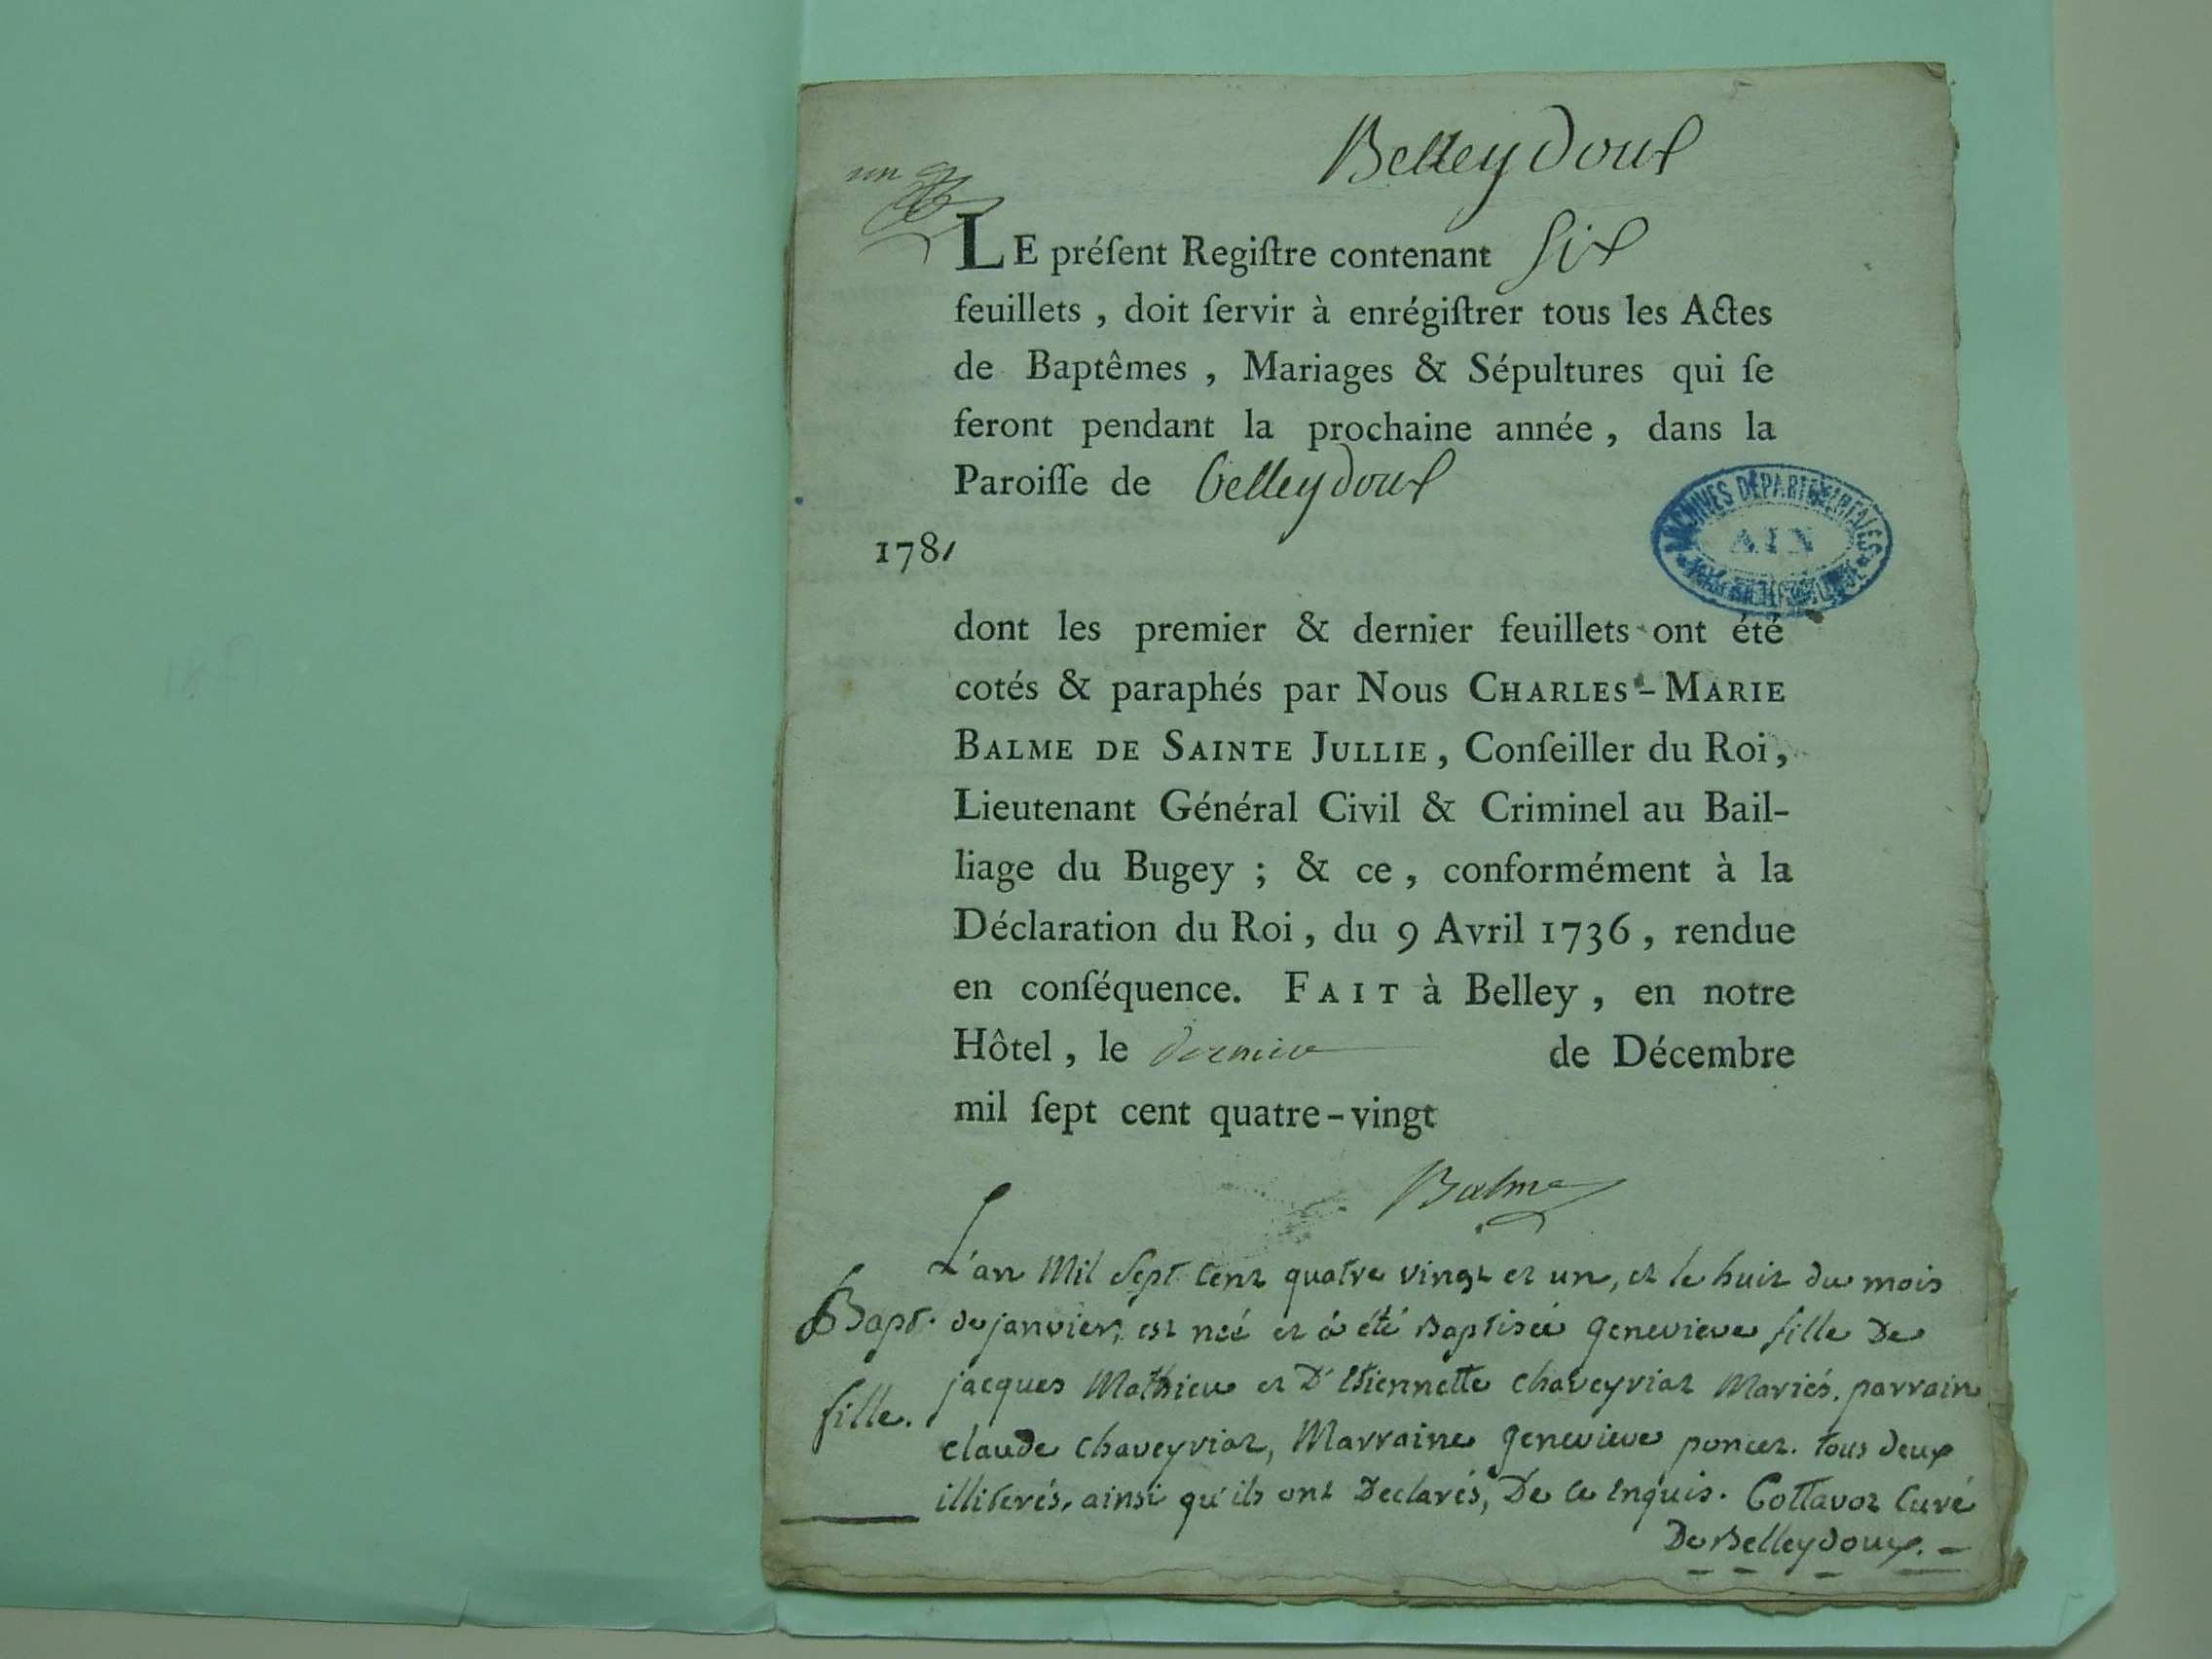 Belleydoux
un
LE préſent Regiſtre contenant Six
feuillets , doit ſervir à enrégiſtrer tous les Actes
de Baptêmes , Mariages & Sépultures qui ſe
feront pendant la prochaine année , dans la
Paroiſſe de belleydoux
1781
ARCHIVES DÉPARTEMENTALES
AIN
dont les premier & dernier feuillets ont été
cotés & paraphés par Nous CHARLES-MARIE
BALME DE SAINTE JULLIE, Conſeiller du Roi,
Lieutenant Général Civil & Criminel au Bail-
liage du Bugey ; & ce , conformément à la
Déclaration du Roi, du 9 Avril 1736, rendue
en conſéquence. FAIT à Belley , en notre
Hôtel, le dernier de Décembre
mil ſept cent quatre-vingt
Balme
L'an Mil Sept Cent quatre vingt et un, et le huit du mois
Bapt. de janvier, est neé et á été Baptiseé genevieve fille De
jacques Mathieu et D'Etiennette chaveyriat Mariés. parrain
fille.
claude chaveyriat, Marraine genevieve poncet. tous deux
illiterés, ainsi qu'ils ont Declarés, De ce Enquis. Cottavoz Curé
De Belleydoux.
1781